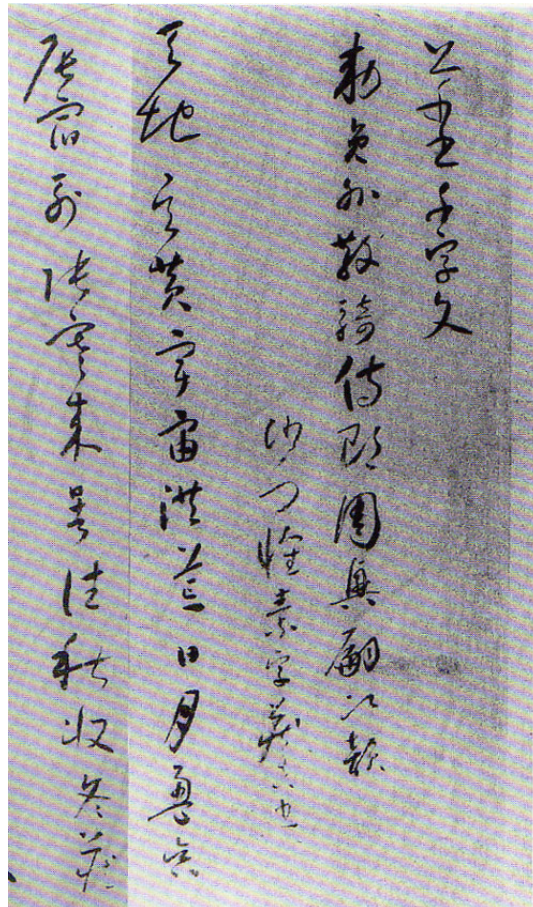 千字文
勅員外散騎侍郎周興嗣次韻
沙門懷素字藏真也
天地玄黃宇宙洪荒日月盈昃
辰宿列張寒来暑往秋收冬藏